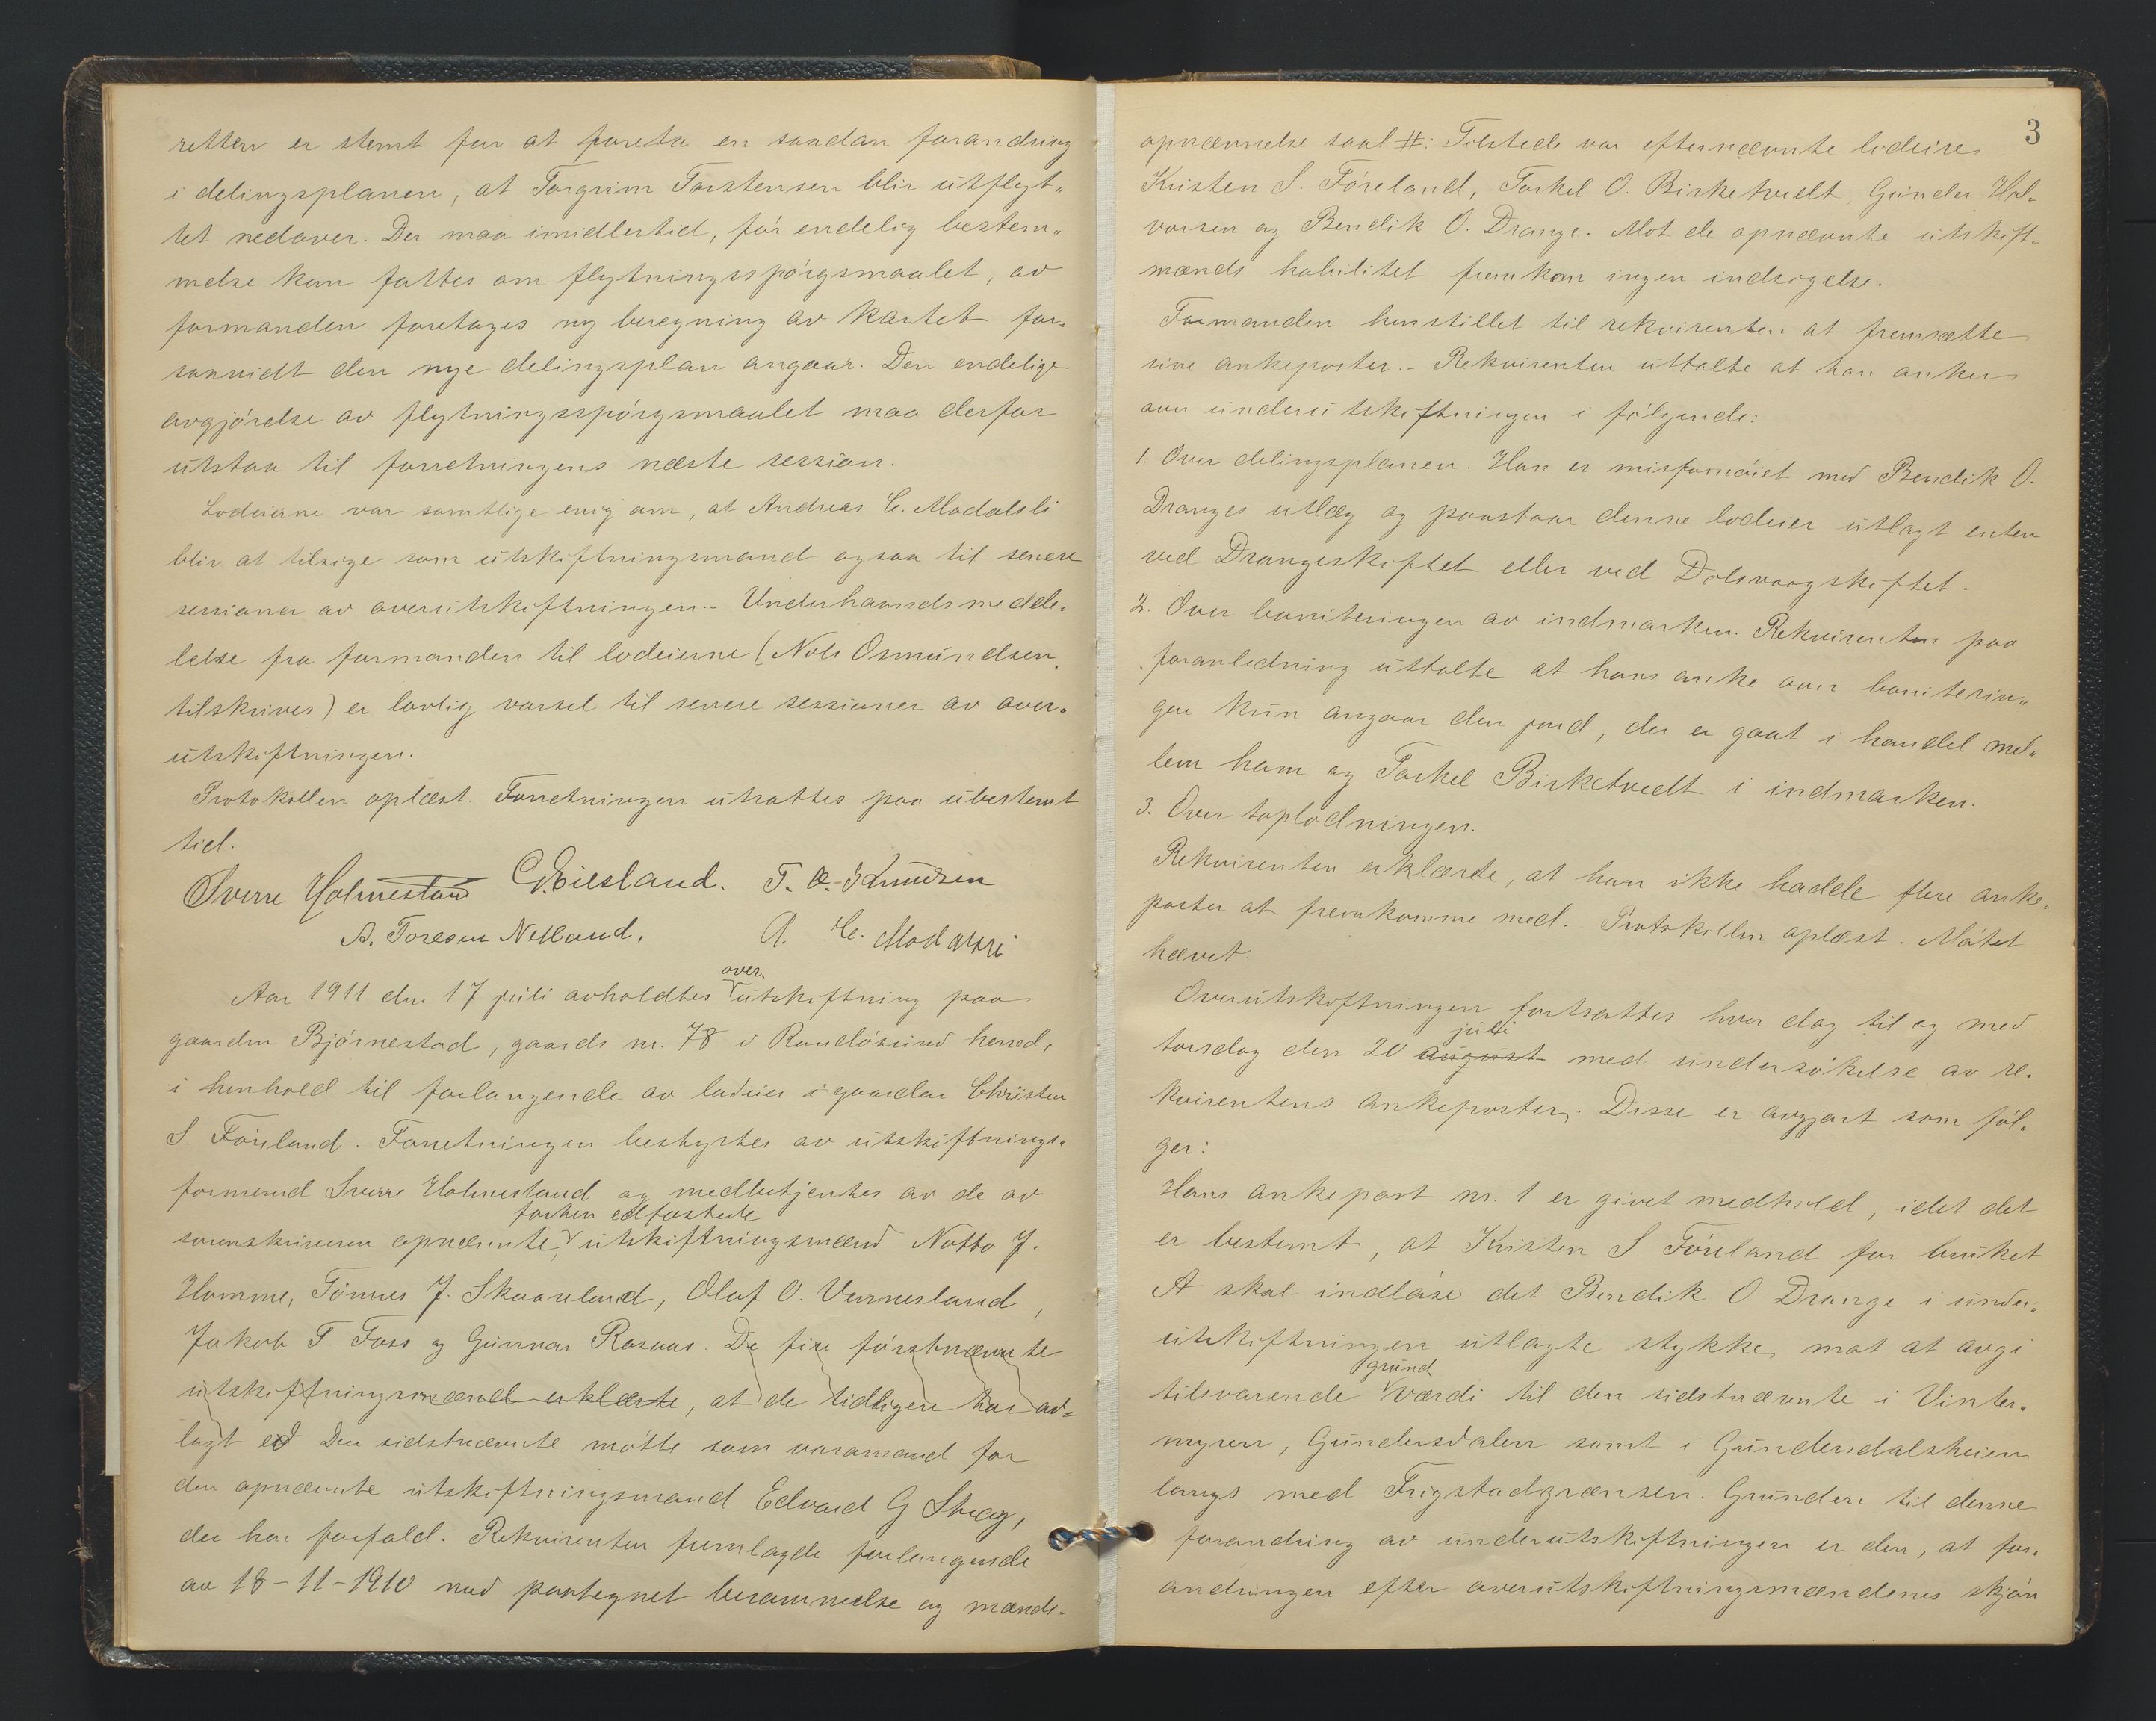 retten er stemt for at foreta en saadan forandring
i delingsplanen, at Torgrim Torstensen blir utflyt-
tet nedover. Der maa imidlertid, før endelig bestem-
melse kan fattes om flytningsspørgsmaalet, av
formanden foretages ny beregning av kartet for-
saavidt den nye delingsplan angaar. Den endelige
avgjørelse av flytningsspørgsmaalet maa derfor
utstaa til forretningens næste session.
Lodeierne var samtlige enig om, at Andreas C. Modalsli
blir at tilsige som utskiftningsmand ogsaa til senere
sessioner av overutskiftningen.- Underhaandsmedde-
lelse fra formanden til lodeierne (Nils Osmundsen
tilskrives) er lovlig varsel til senere sessioner av over-
utskiftningen.
Protokollen oplæst. Forretningen utsattes paa ubestemt
tid.
Sverre Holmesland G. Eiesland. T. O. Knudsen
A. Toresen Netland. A. C. Modalsli
Aar 1911 den 17 juli avholdtes over utskiftning paa
gaarden Bjørnestad, gaards nr. 78 i Randøsund herred,
i henhold til forlangende av lodeier i gaarden Christen
S. Føreland. Forretningen bestyrtes av utskiftnings-
formand Sverre Holmesland og medbetjentes av de av
sorenskriveren opnævnte, forhen edfæstede utskiftningsmænd Notto J.
Homme, Tønnes J. Skaareland, Olaf O. Vernesland,
Jakob T Foss og Gunnar Rosaas. De fire førstnævnte
utskiftningsmænd erklærte, at de tidligere har av-
lagt ed Den sidstnævnte møtte som varamand for
den opnævnte utskiftningsmand Edvard G Stray,
der har forfald. Rekvirenten fremlagde forlangende
av 18-11-1910 med paategnet berammelse og mands-
3
opnævnelse saal #: Tilstede var efternævnte lodeiere
Kristen S. Føreland, Torkel O. Birketveit, Gunder Hal-
vorsen og Bendik O. Drange. Mot de opnævnte utskift-
mænds habilitet fremkom ingen indsigelse.
Formanden henstillet til rekvirenten at fremsætte
sine ankeposter.- Rekvirenten uttalte at han anker
over underutskiftningen i følgende:
1. Over delingsplanen. Han er misfornøiet med Bendik O.
Dranges utlæg og paastaar denne lodeier utlagt enten
ved Drangeskiftet eller ved Dolsvaagskiftet.
2. Over boniteringen av indmarken. Rekvirenten paa
foranledning uttalte at hans anke over boniterin-
gen kun angaar den jord, der er gaat i handel mel-
lem ham og Torkel Birketveit i indmarken.
3. Over toplodningen.
Rekvirenten erklærte, at han ikke hadde flere anke-
poster at fremkomme med. Protokollen oplæst. Møtet
hævet.
Overutskiftningen fortsattes hver dag til og med
torsdag den 20 august juli med undersøkelse av re-
kvirentens ankeposter. Disse er avgjort som føl-
ger:
Hans ankepost nr. 1 er givet medhold, idet det
er bestemt, at Kristen S. Føreland for bruket
A skal indløse det Bendik O Drange i under-
utskiftningen utlagte stykke, mot at avgi
tilsvarende grund værdi til den sidstnævnte i Vinter-
myren, Gundersdalen samt i Gundersdalsheien
langs med Frigstadgrænsen. Grunden til denne
forandring av underutskiftningen er den, at for-
andringen efter overutskiftningsmændenes skjøn